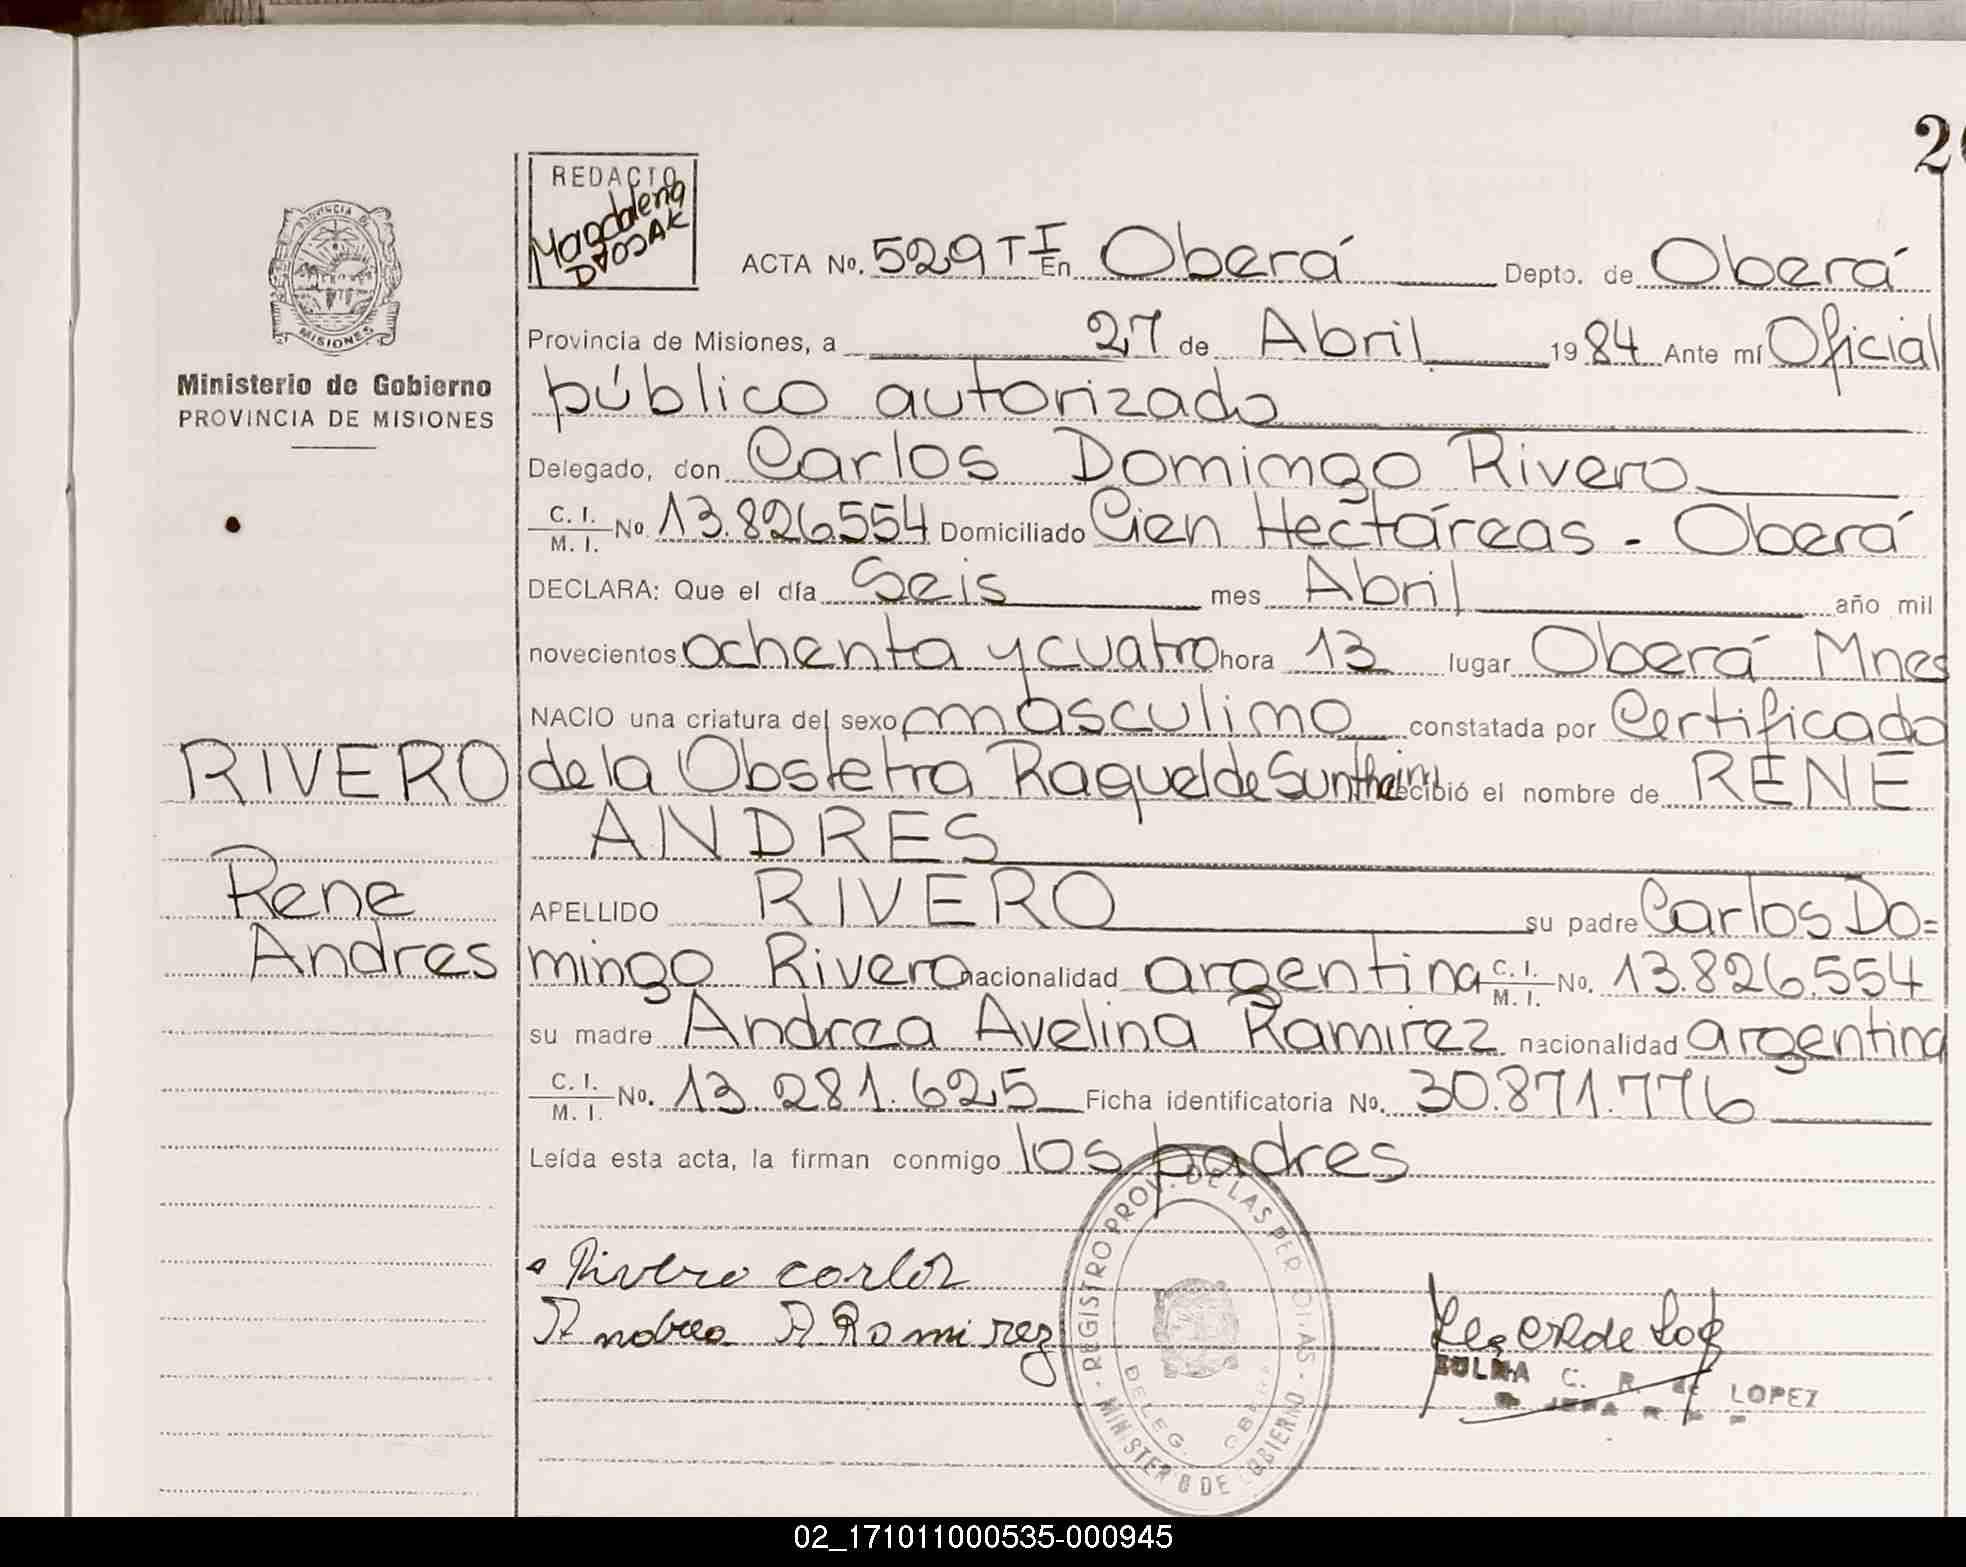 2
REDACTO
Magdalena
DVOJAK
PROVINCIA DE
MISIONES
Ministerio de Gobierno
PROVINCIA DE MISIONES
ACTA No. 529 T I En Oberá Depto. de Oberá
Provincia de Misiones, a 27 de Abril 1984 Ante mí Oficial
público autorizado
Delegado, don Carlos Domingo Rivero
C. I. M. I. No. 13.826.554 Domiciliado Cien Hectáreas - Oberá
DECLARA: Que el día Seis mes Abril año mil
novecientos ochenta y cuatro hora 13 lugar Oberá Mnes
NACIO una criatura del sexo masculino constatada por Certificado
de la Obstetra Raquel de Sunthein recibió el nombre de RENE
ANDRES
RIVERO
Rene
Andres
APELLIDO RIVERO su padre Carlos Do=
mingo Rivero nacionalidad argentina C. I. M. I. No. 13.826.554
su madre Andrea Avelina Ramirez nacionalidad argentina
C. I. M. I. No. 13.281.625 Ficha identificatoria No. 30.871.776
Leída esta acta, la firman conmigo los padres
Rivero carlos
Andrea A Ramirez
REGISTRO PROV. DE LAS PER
MINISTERIO DE GOBIERNO
DELEG. OBERA
ZULMA C. R. de LOPEZ
02_171011000535-000945